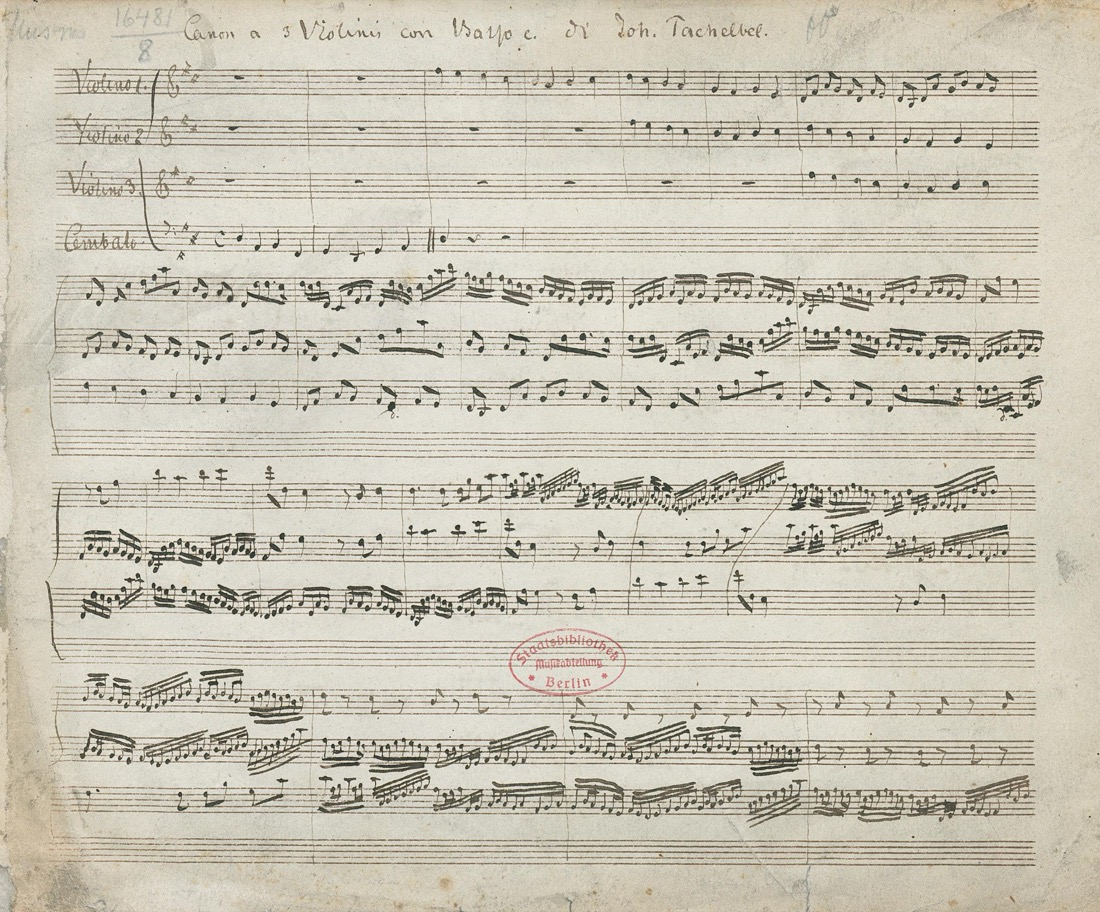 Mus ms 16481
8
Canon a 3 Violinis con Basso c. di Joh. Pachelbel.
Violino 1.
Violino 2
Violino 3.
Cembalo
Staatsbibliothek
Musikabteilung
Berlin